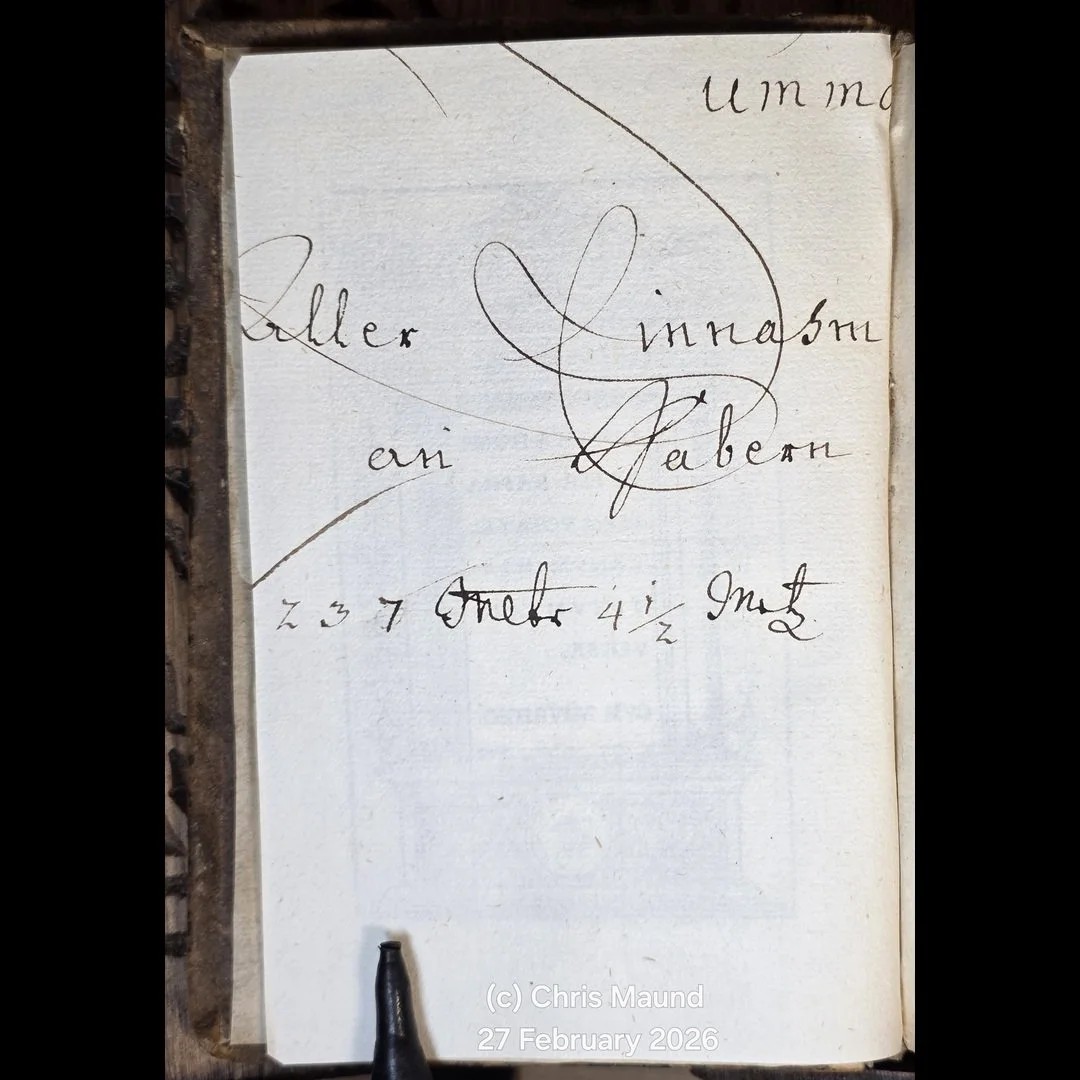 umma
Aller Einnahm
an Habern
237 Metr 4 1/2 Metz
(c) Chris Maund
27 February 2026